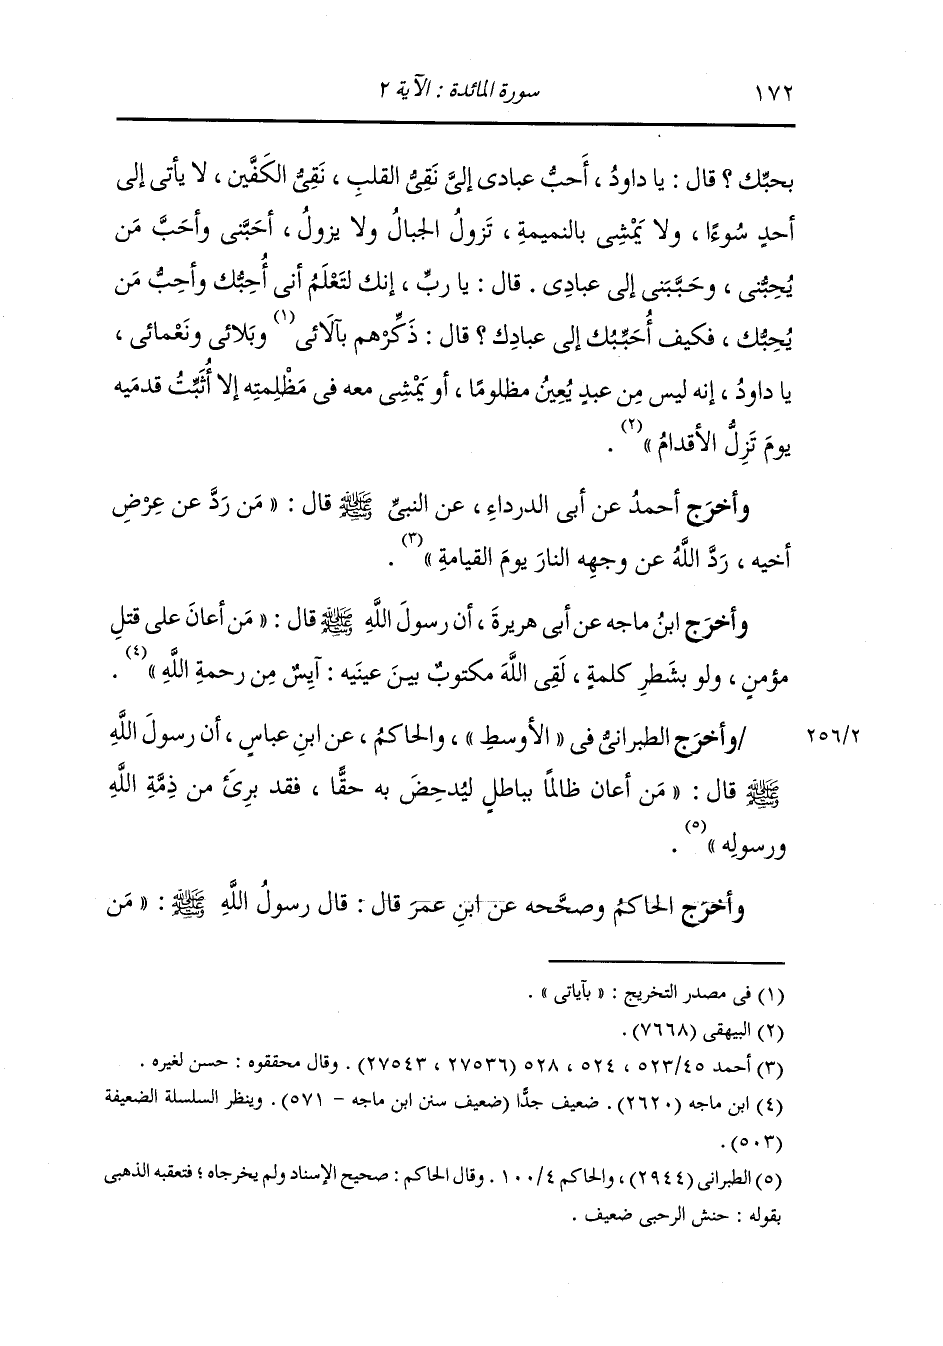 ١٧٢ سورة المائدة : الآية ٢
بحبِّك ؟ قال : يا داودُ ، أَحبُّ عبادى إلىَّ نَقِىُّ القلبِ ، نَقِىُّ الكَفَّين ، لا يأتى إلى
أحدٍ سُوءًا ، ولا يَمْشِى بالنميمةِ ، تَزولُ الجبالُ ولا يزولُ ، أحَبَّنى وأحَبَّ مَن
يُحِبُّنى ، وحَبَّبَنى إلى عبادِى . قال : يا ربِّ ، إنك لتَعْلَمُ أنى أُحِبُّك وأحِبُّ مَن
يُحِبُّك ، فكيف أُحَبِّبُك إلى عبادِك ؟ قال : ذَكِّرْهم بآلَائى(١) وبَلائى ونَعْمائى ،
يا داودُ ، إنه ليس مِن عبدٍ يُعِينُ مظلومًا ، أو يَمْشِى معه فى مَظْلِمتِه إلا أُثَبِّتُ قدمَيه
يومَ تَزِلُّ الأقدامُ »(٢) .
وأخرَج أحمدُ عن أبى الدرداءِ ، عن النبىِّ ﷺ قال : « مَن رَدَّ عن عِرْضِ
أخيه ، رَدَّ اللَّهُ عن وجهِه النارَ يومَ القيامةِ »(٣) .
وأخرَج ابنُ ماجه عن أبى هريرةَ ، أن رسولَ اللَّهِ ﷺ قال : « مَن أعانَ على قتلِ
مؤمنٍ ، ولو بشَطرِ كلمةٍ ، لَقِى اللَّهَ مكتوبٌ بينَ عينَيه : آيِسٌ مِن رحمةِ اللَّهِ »(٤) .
٢٥٦/٢ /وأخرَج الطبرانىُّ فى « الأوسطِ » ، والحاكمُ ، عن ابنِ عباسٍ ، أن رسولَ اللَّهِ
ﷺ قال : « مَن أعان ظالمًا بباطلٍ ليُدحِضَ به حقًّا ، فقد برِئَ من ذِمَّةِ اللَّهِ
ورسولِه »(٥) .
وأخرَج الحاكمُ وصحَّحه عن ابنِ عمرَ قال : قال رسولُ اللَّهِ ﷺ : « مَن
(١) فى مصدر التخريج : « بآياتى » .
(٢) البيهقى (٧٦٦٨) .
(٣) أحمد ٥٢٣/٤٥ ، ٥٢٤ ، ٥٢٨ (٢٧٥٣٦ ، ٢٧٥٤٣) . وقال محققوه : حسن لغيره .
(٤) ابن ماجه (٢٦٢٠) . ضعيف جدًّا (ضعيف سنن ابن ماجه – ٥٧١) . وينظر السلسلة الضعيفة
(٥٠٣) .
(٥) الطبرانى (٢٩٤٤) ، والحاكم ١٠٠/٤ . وقال الحاكم : صحيح الإسناد ولم يخرجاه ؛ فتعقبه الذهبى
بقوله : حنش الرحبى ضعيف .